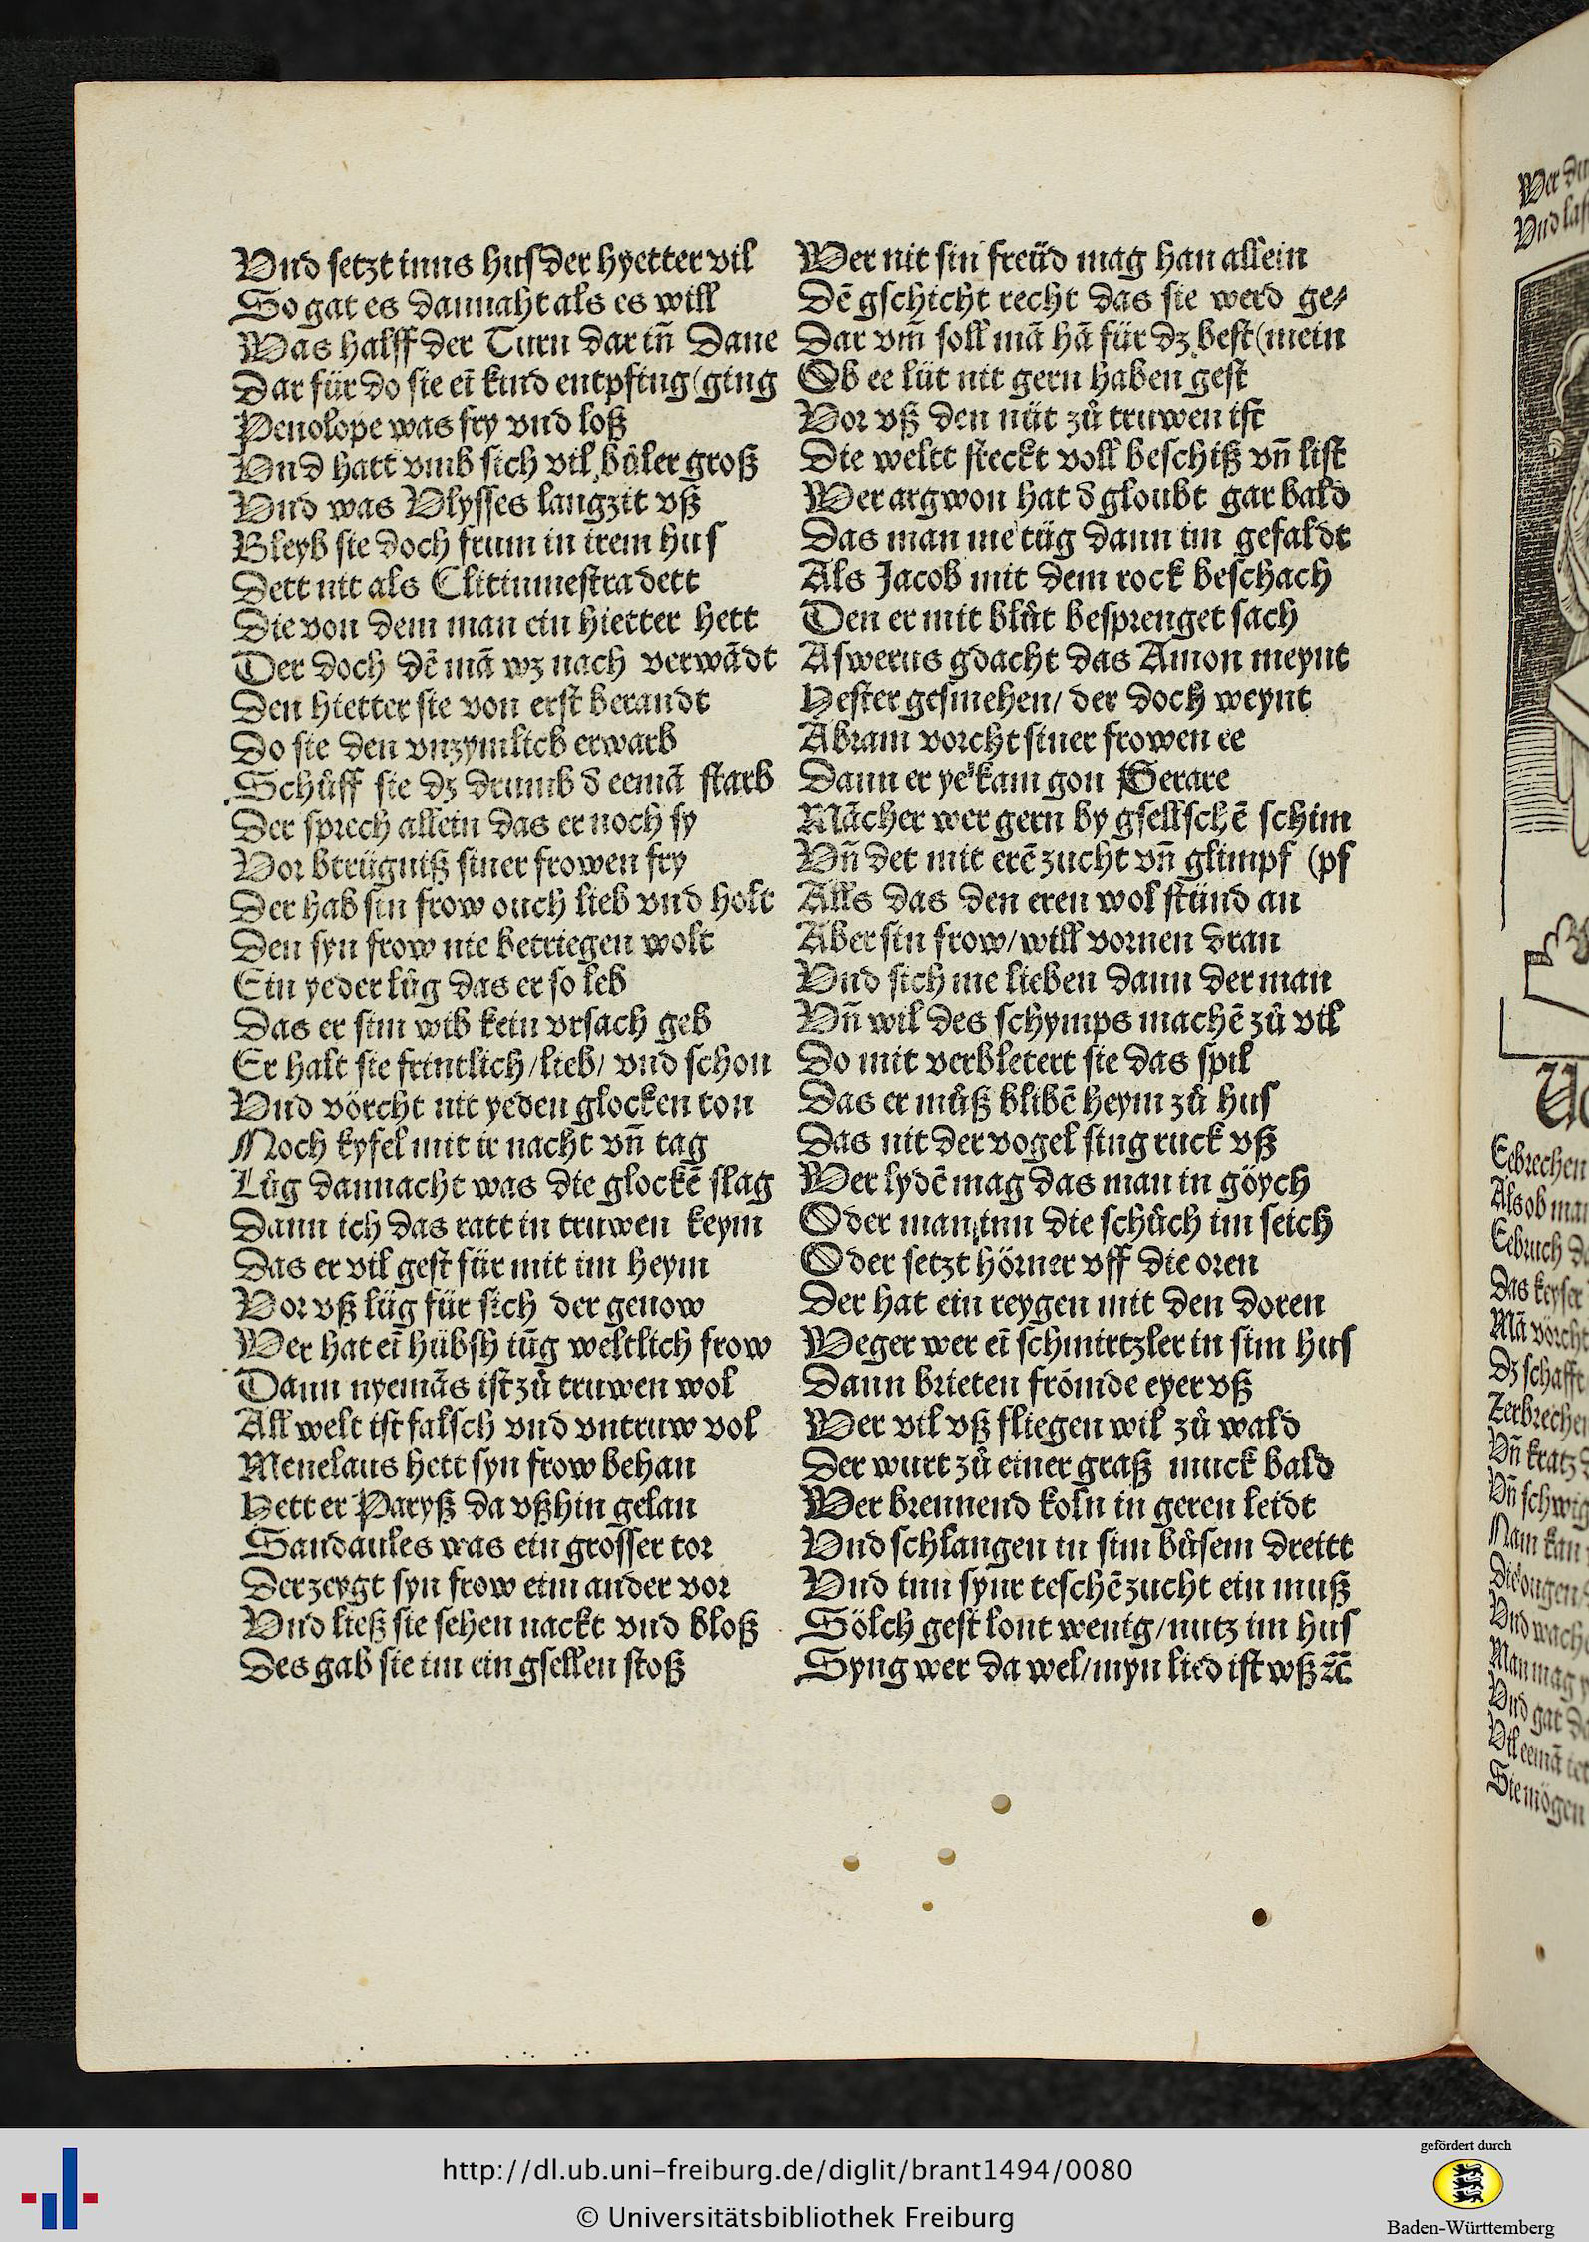 Vnd setzt inns hus der hyetter vil
So gat es dannaht als es will
Was halff der Turn dar in̄ Dane
Dar für do sie eī kind entpfing (ging
Penolope was fry vnd loß
Vnd hatt vmb sich vil bůler groß
Vnd was Vlysses langzit vß
Bleyb sie doch frum in irem hus
Dett nit als Clitinnestra dett
Die von dem man ein hietter hett
Der doch dē mā wz nach verwādt
Den hietter sie von erst berandt
Do sie den vnzymlich erwarb
Schůff sie dz drumb d eemā starb
Der sprech allein das er noch sy
Vor btrügniß siner frowen fry
Der hab sin frow ouch lieb vnd holt
Den syn frow nie betriegen wolt
Ein yeder lůg das er so leb
Das er sim wib kein vrsach geb
Er halt sie frintlich/lieb/ vnd schon
Vnd vörcht nit yeden glocken ton
Noch kyfel mit ir nacht vn̄ tag
Lůg dannacht was die glockē slag
Dann ich das ratt in truwen keym
Das er vil gest für mit im heym
Vor vß lüg für sich der genow
Wer hat eī hübsh iūg weltlich frow
Dann nyemās ist zů truwen wol
All welt ist falsch vnd vntruw vol
Menelaus hett syn frow behan
Hett er Paryß da vßhin gelan
Sandaules was ein grosser tor
Der zeygt syn frow eim ander vor
Vnd ließ sie sehen nackt vnd bloß
Des gab sie im ein gsellen stoß
Wer nit sin freüd mag han allein
Dē gschicht recht das sie werd ge⸗
Dar vm̄ soll mā hā für dz best (mein
Ob ee lüt nit gern haben gest
Vor vß den nüt zů truwen ist
Die weltt steckt voll beschiß vn̄ list
Wer argwon hat d gloubt gar bald
Das man me tüg dann im gefaldt
Als Jacob mit dem rock beschach
Den er mit blůt besprenget sach
Aswerus gdacht das Amon meynt
Hester gesmehen/ der doch weynt
Abram vorcht siner frowen ee
Dann er ye kam gon Gerare
Mācher wer gern by gsellschē schim
Vn̄ det mit erē zucht vn̄ glimpf (pf
Alls das den eren wol stünd an
Aber sin frow/will vornen dran
Vnd sich me lieben dann der man
Vn̄ wil des schymps machē zů vil
Do mit verbletert sie das spil
Das er můß blibē heym zů hus
Das nit der vogel sing ruck vß
Wer lydē mag das man in göych
Oder man inn die schůch im seich
Oder setzt hörner vff die oren
Der hat ein reygen mit den doren
Weger wer eī schmirtzler in sim hus
Dann brieten frömde eyer vß
Wer vil vß fliegen wil zů wald
Der wurt zů einer graß muck bald
Wer brennend koln in geren leidt
Vnd schlangen in sim bůsem dreitt
Vnd inn synr teschē zucht ein muß
Sölch gest lont wenig/nutz im hus
Syng wer da wel/myn lied ist wß ⁊c̄
Wer du
Vnd las
Eebrechen
Als ob man
Eebruch d
Das keyser
Mā vörcht
Dz schafft
Zerbrechen
Vn̄ kratz
Vn̄ schwig
Nam kan
Die ougen
Vnd wach
Man mag
Vnd gat d
Vil eemā
Sie mögen
http://dl.ub.uni-freiburg.de/diglit/brant1494/0080
© Universitätsbibliothek Freiburg
gefördert durch
Baden-Württemberg